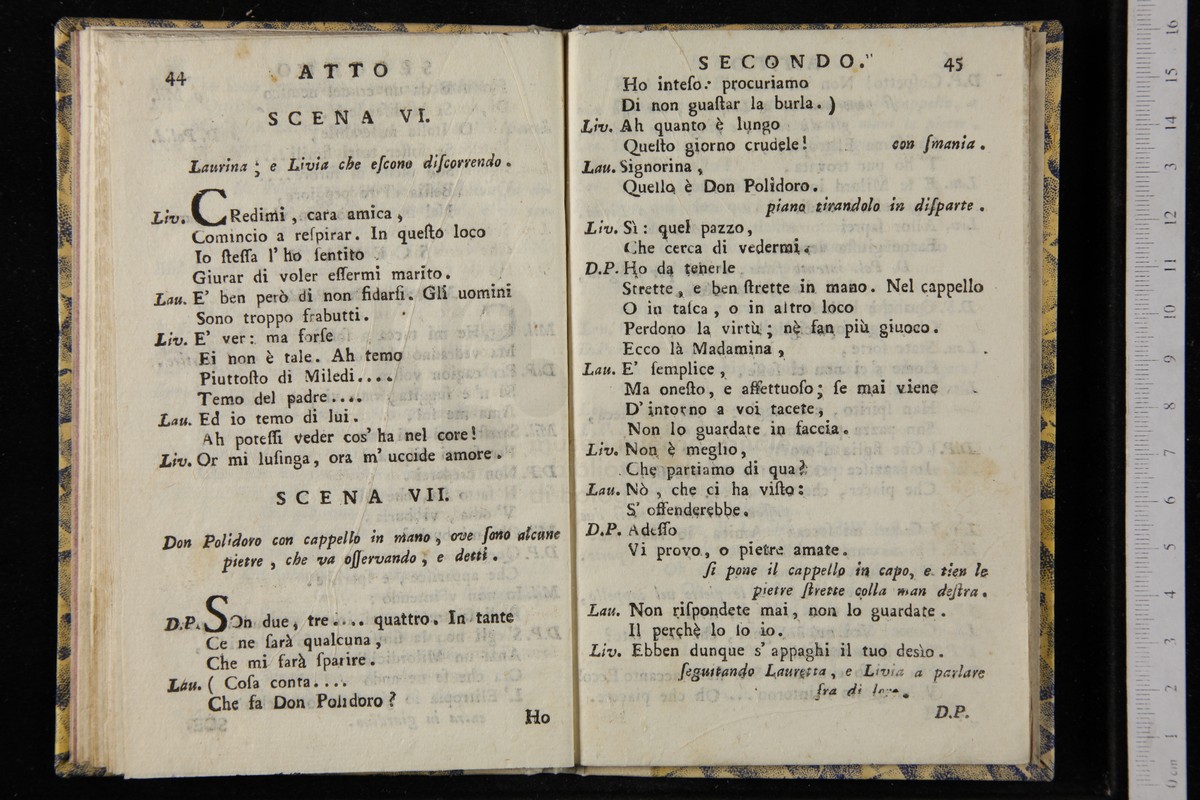 44 ATTO
SCENA VI.
Laurina ; e Livia che eſcono diſcorrendo .
Liv. CRedimi , cara amica ,
Comincio a reſpirar. In queſto loco
Io ſteſſa l' ho ſentito
Giurar di voler eſſermi marito.
Lau. E' ben però di non fidarſi. Gli uomini
Sono troppo frabutti.
Liv. E' ver: ma forſe
Ei non è tale. Ah temo
Piuttoſto di Miledi....
Temo del padre....
Lau. Ed io temo di lui.
Ah poteſſi veder cos' ha nel core!
Liv. Or mi luſinga, ora m' uccide amore.
SCENA VII.
Don Polidoro con cappello in mano , ove ſono alcune
pietre , che va oſſervando , e detti .
D.P. SOn due, tre.... quattro. In tante
Ce ne ſarà qualcuna ,
Che mi farà ſparire.
Lau. ( Coſa conta....
Che fa Don Polidoro ?
Ho
SECONDO. 45
Ho inteſo: procuriamo
Di non guaſtar la burla. )
Liv. Ah quanto è lungo
Queſto giorno crudele! con ſmania .
Lau. Signorina ,
Quello è Don Polidoro.
piano tirandolo in diſparte .
Liv. Sì : quel pazzo,
Che cerca di vedermi.
D.P. Ho da tenerle
Strette, e ben ſtrette in mano. Nel cappello
O in taſca , o in altro loco
Perdono la virtù ; nè fan più giuoco.
Ecco là Madamina ,
Lau. E' ſemplice ,
Ma oneſto, e affettuoſo; ſe mai viene
D' intorno a voi tacete,
Non lo guardate in faccia.
Liv. Non è meglio,
Che partiamo di qua?
Lau. Nò , che ci ha viſto:
S' offenderebbe.
D.P. Adeſſo
Vi provo, o pietre amate.
ſi pone il cappello in capo, e tien le
pietre ſtrette colla man deſtra.
Lau. Non riſpondete mai, non lo guardate .
Il perchè lo ſo io.
Liv. Ebben dunque s' appaghi il tuo desìo .
ſeguitando Lauretta , e Livia a parlare
fra di loro.
D.P.